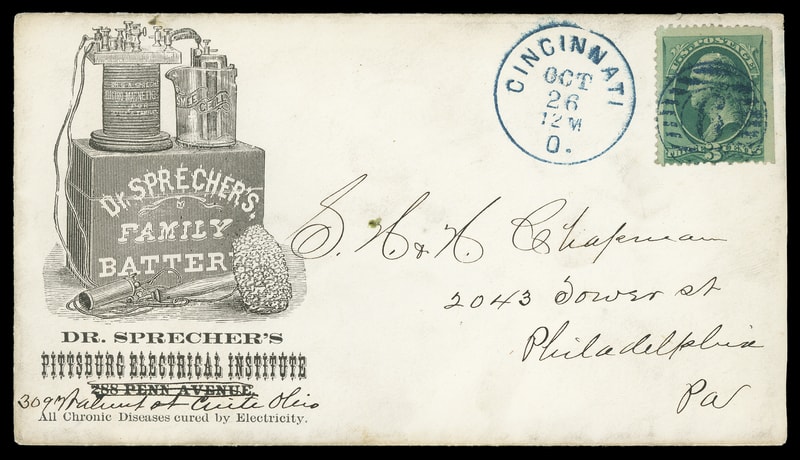 Dr. SPRECHER'S.
FAMILY
BATTER
DR. SPRECHER'S
PITTSBURG ELECTRICAL INSTITUTE
288 PENN AVENUE
309 Walnut st Cinti Ohio
All Chronic Diseases cured by Electricity.
CINCINNATI
OCT
26
12 M
O.
U.S. POSTAGE
3
S. H. & H. Chapman
2043 Tower st
Philadelphia
Pa